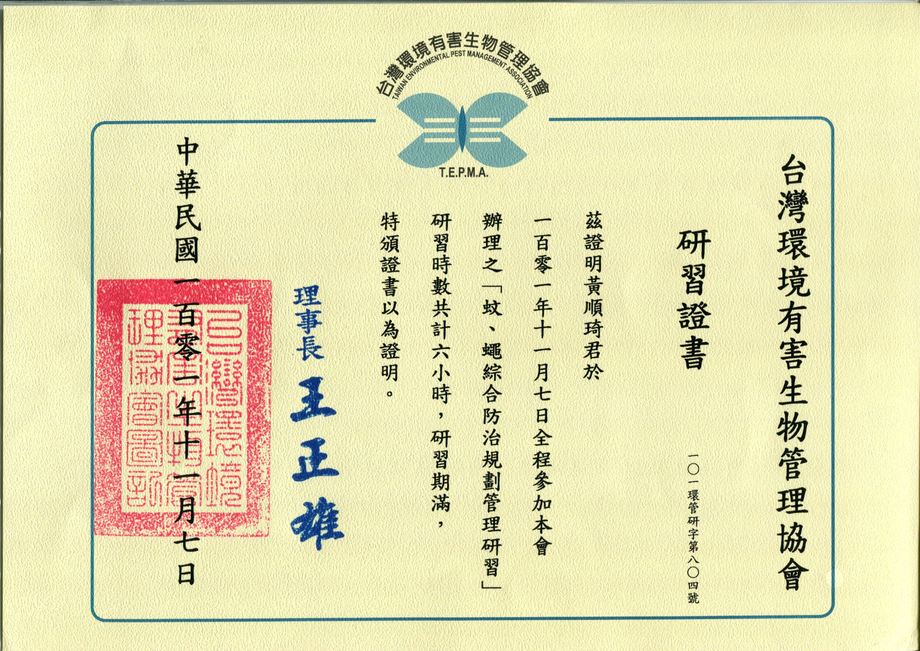 台灣環境有害生物管理協會
TAIWAN ENVIRONMENTAL PEST MANAGEMENT ASSOCIATION
T.E.P.M.A.
台灣環境有害生物管理協會
研習證書
一〇一環管研字第八〇四號
茲證明黃順琦君於
一百零一年十一月七日全程參加本會
辦理之「蚊、蠅綜合防治規劃管理研習」
研習時數共計六小時，研習期滿，
特頒證書以為證明。
理事長 王正雄
中華民國一百零一年十一月七日